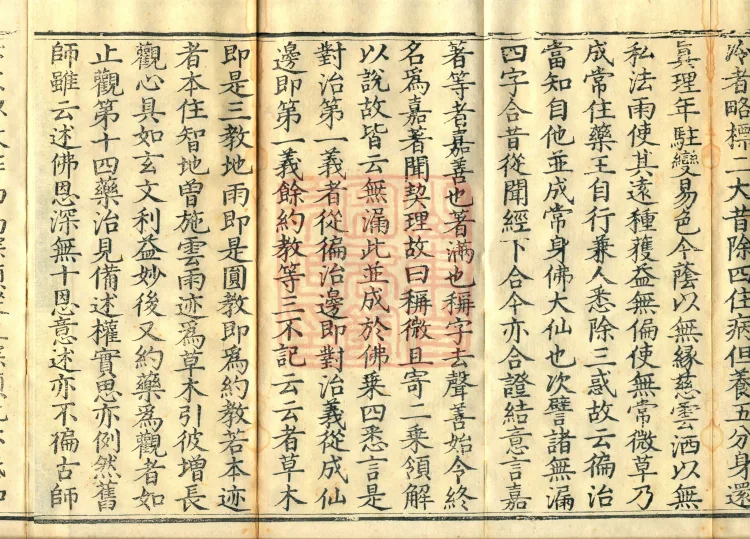 冷者略標二大昔除四住病但養五分身還
眞理年駐變易色今蔭以無縁慈雲洒以無
私法雨使其遠種獲益無偏使無常微草乃
成常住藥王自行兼人悉除三惑故云徧治
當知自他並成常身佛大仙也次譬諸無漏
四字合昔從聞經下合今亦合證結意言嘉
著等者嘉善也著滿也稱字去聲善始令終
名爲嘉著聞契理故曰稱微且寄二乗領解
以說故皆云無漏此並成於佛乗四悉言是
對治第一義者從徧治邊即對治義從成仙
邊即第一義餘約教等三不記云云者草木
即是三教地雨即是圓教即爲約教若本迹
者本住智地曽施雲雨迹爲草木引彼增長
觀心具如玄文利益妙後又約藥爲觀者如
止觀第十四藥治見備述權實思亦例然舊
師雖云述佛恩深無十恩意述亦不徧古師